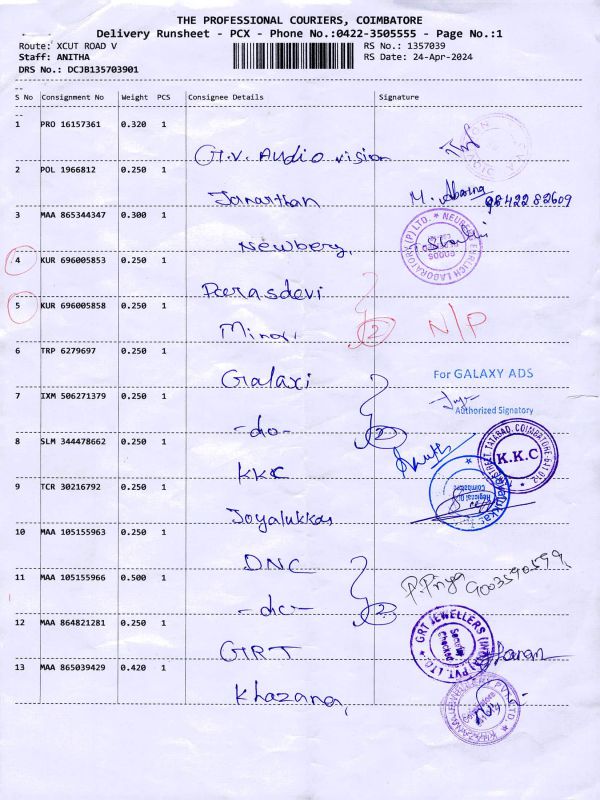 THE PROFESSIONAL COURIERS, COIMBATORE
Delivery Runsheet - PCX - Phone No.:0422-3505555 - Page No.:1
Route: XCUT ROAD V
RS No.: 1357039
Staff: ANITHA
RS Date: 24-Apr-2024
DRS No.: DCJB135703901
S No Consignment No Weight PCS Consignee Details Signature
1 PRO 16157361 0.320 1
G.V. Audio vision
2 POL 1966812 0.250 1
Janarthan M. 9842282609
3 MAA 865344347 0.300 1
Newberg,
4 KUR 696005853 0.250 1
Parasdevi
5 KUR 696005858 0.250 1
2 N/P
6 TRP 6279697 0.250 1
Galaxi
For GALAXY ADS
7 IXM 506271379 0.250 1
Authorized Signatory
-do- 2
8 SLM 344478662 0.250 1
K.K.C
KKC
9 TCR 30216792 0.250 1
Joyalukkas
10 MAA 105155963 0.250 1
DNC
11 MAA 105155966 0.500 1
P. Priya 9003590599
-do- 2
12 MAA 864821281 0.250 1
GRT JEWELLERS
GRT
13 MAA 865039429 0.420 1
Khazana,